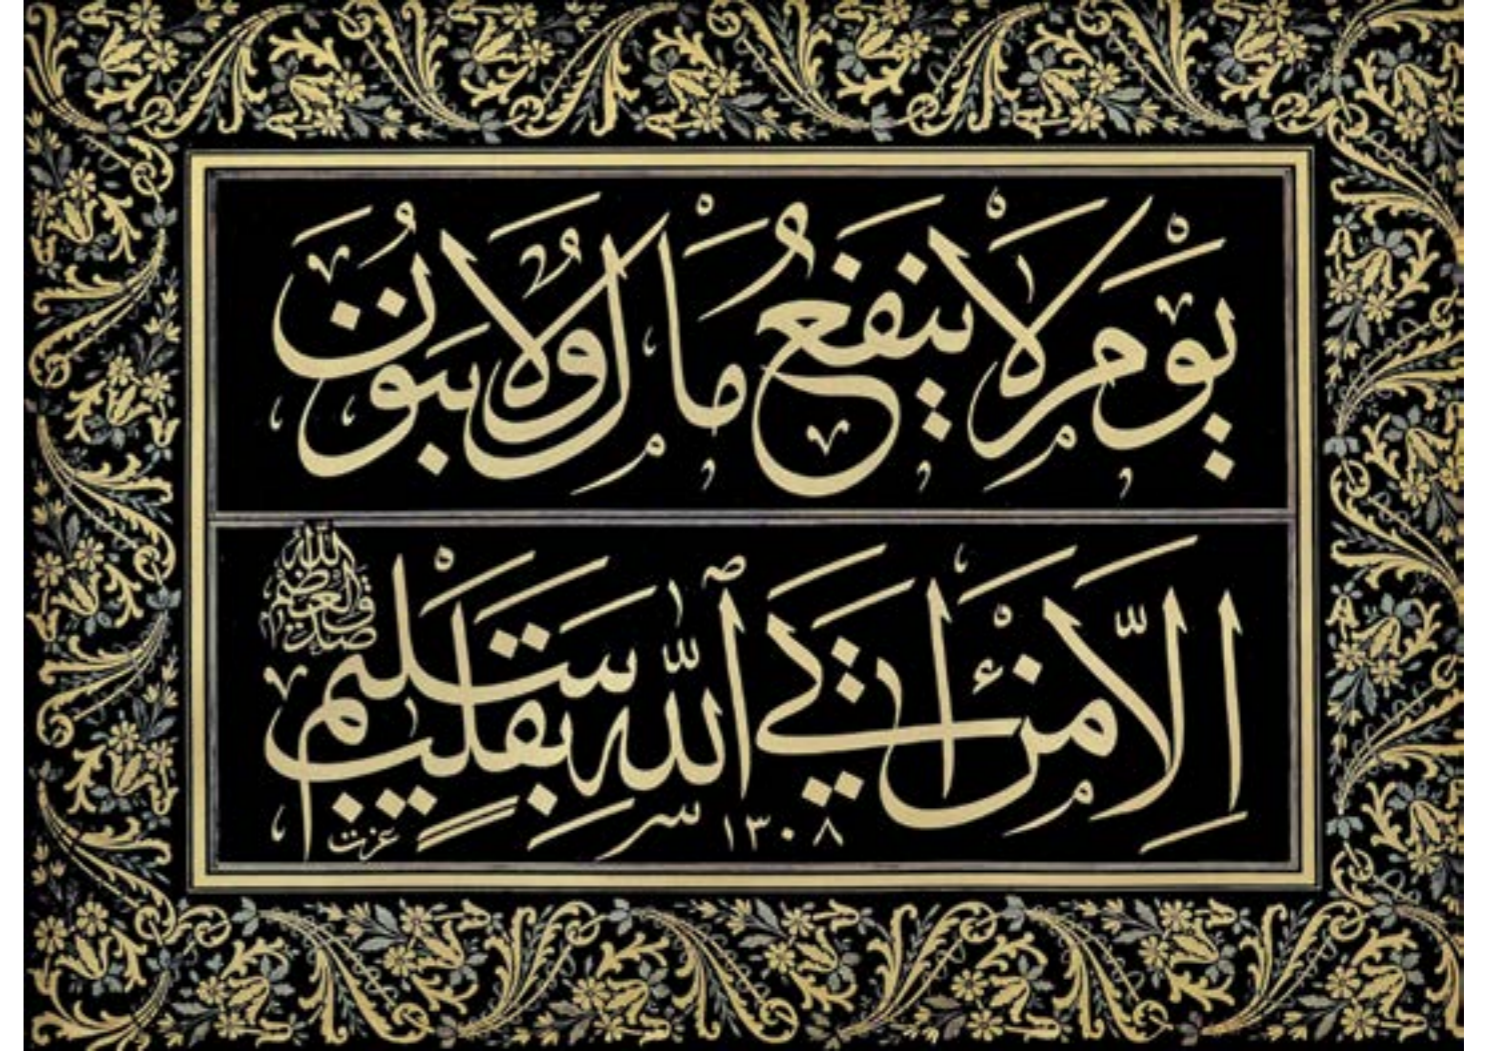 يَوْمَ لَا يَنْفَعُ مَالٌ وَلَا بَنُونَ
إِلَّا مَنْ أَتَى ٱللّٰهَ بِقَلْبٍ سَلِيمٍ
صدق الله العظيم
١٣٠٨
عزت